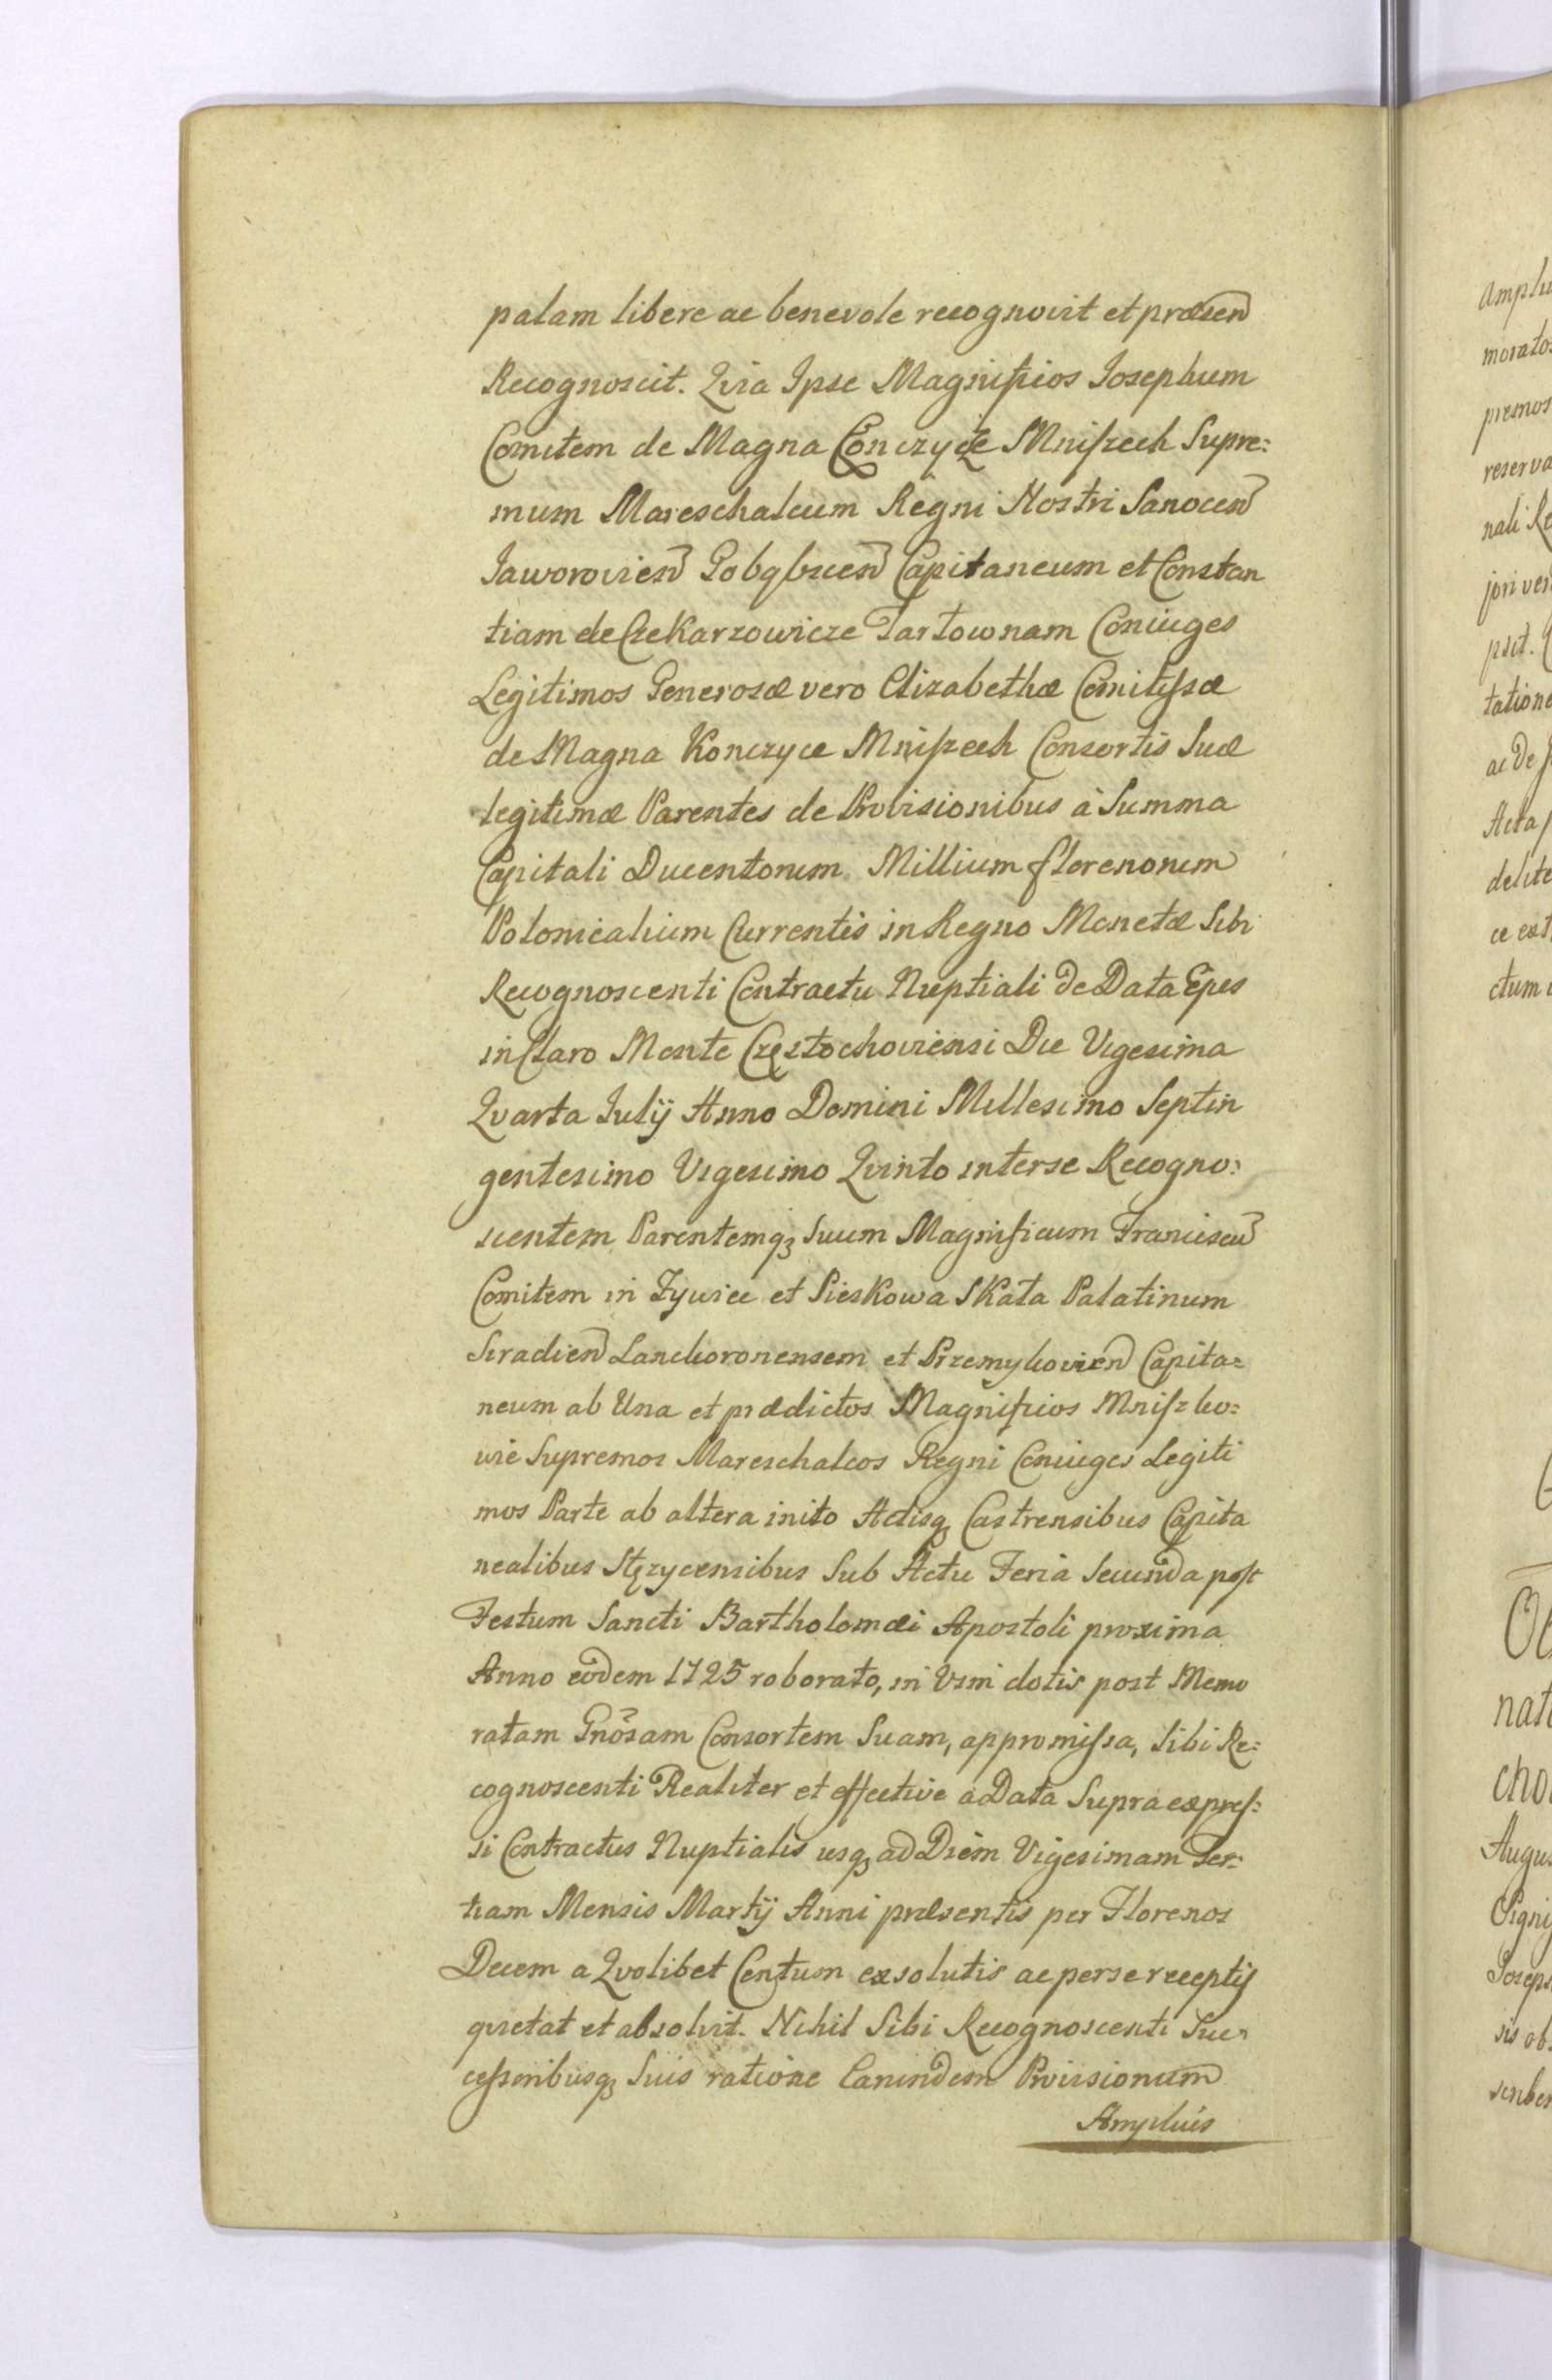 palam libere ac benevole recognovit et præsen
Recognoscit. Qvia Ipse Magnificos Iosephum
Comitem de Magna Conczyce Mniszech Supre:
mum Mareschalcum Regni Nostri Sanocen
Iaworovien Capitaneum et Constan
tiam de Czekarzowicze Tarłownam Coniuges
Legitimos Generosæ vero Elizabethæ Comitissæ
de Magna Konczyce Mniszech Consortis Suæ
legitimæ Parentes de Provisionibus à Summa
Capitali Ducentorum Millium florenorum
Polonicalium Currentis in Regno Monetæ Sibi
Recognoscenti Contractu Nuptiali de Data
in Claro Monte Częstochoviensi Die Vigesima
Qvarta Iulij Anno Domini Millesimo Septin
gentesimo Vigesimo Qvinto inter se Recogno:
scentem Parentemq3 Suum Magnificum Franciscu
Comitem in Zywiec et Pieskowa Skała Palatinum
Siradien Lanckoronensem et Przemykovien Capita=
neum ab Una et prædictos Magnificos Mniszko:
wie Supremos Mareschalcos Regni Coniuges Legiti
mos Parte ab altera inito Actisq Castrensibus Capita
nealibus Stęzycensibus Sub Actu Feria Secunda post
Festum Sancti Bartholomæi Apostoli proxima
Anno eodem 1725 roborato, in Vim dotis post Memo
ratam Gnosam Consortem Suam, appromissa, Sibi Re=
cognoscenti Realiter et effective à Data Supra expres:
si Contractus Nuptialis usq3 ad Diem Vigesimam Ter:
tiam Mensis Martij Anni præsentis per Florenos
Decem a Qvolibet Centum exsolutis ac per se receptis
qvietat et absolvit. Nihil Sibi Recognoscenti Suc=
cessoribusq3 Suis ratione Earundem Provisionum
Amplius